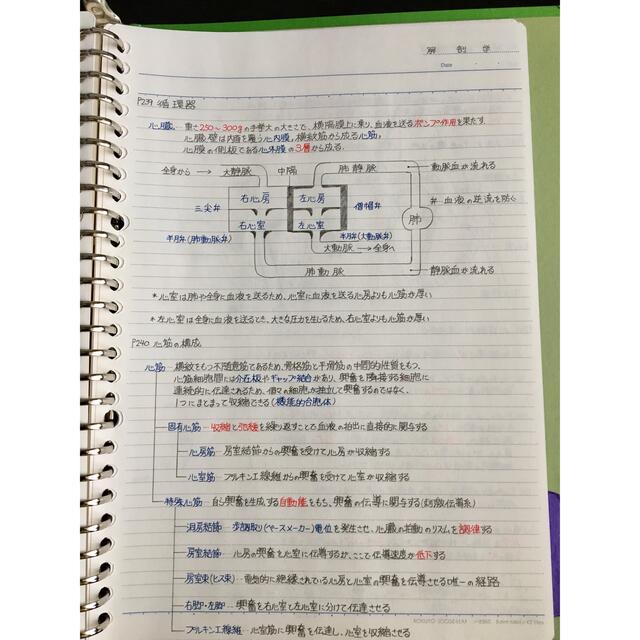 解剖学
Date
P239 循環器
心臓… 重さ250~300gの手拳大の大きさで、横隔膜上に乗り、血液を送るポンプ作用を果たす
心臓壁は内面を覆う心内膜、横紋筋から成る心筋、
心膜の側板である心外膜の3層から成る.
全身から → 大静脈 中隔 肺静脈 動脈血が流れる
右心房 左心房
三尖弁 僧帽弁 肺 弁…血液の逆流を防ぐ
右心室 左心室
半月弁(肺動脈弁) 半月弁(大動脈弁)
大動脈 → 全身へ
肺動脈 静脈血が流れる
*心室は肺や全身に血液を送るため、心室に血液を送る心房よりも心筋が厚い
*左心室は全身に血液を送るとき、大きな圧力を生じるため、右心室よりも心筋が厚い
P240 心筋の構成
心筋 横紋をもつ不随意筋であるため、骨格筋と平滑筋の中間的性質をもつ.
心筋細胞間には介在板やギャップ結合があり、興奮を隣接する細胞に
連続的に伝達されるため、個々の細胞が独立して興奮するのではなく、
1つにまとまって収縮できる(機能的合胞体)
固有心筋… 収縮と弛緩を繰り返すことで血液の拍出に直接的に関与する
心房筋… 房室結節からの興奮を受けて心房が収縮する
心室筋… プルキンエ線維からの興奮を受けて心室が収縮する
特殊心筋… 自ら興奮を生成する自動能をもち、興奮の伝導に関与する(刺激伝導系)
洞房結節… 歩調取り(ペースメーカー)電位を発生させ、心臓の拍動のリズムを調律する
房室結節… 心房の興奮を心室に伝導するが、ここで伝導速度が低下する
房室束(ヒス束)… 電気的に絶縁されている心房と心室の興奮を伝導させる唯一の経路
右脚・左脚… 興奮を右心室と左心室に分けて伝達させる
プルキンエ線維… 心室筋に興奮を伝達し、心室を収縮させる